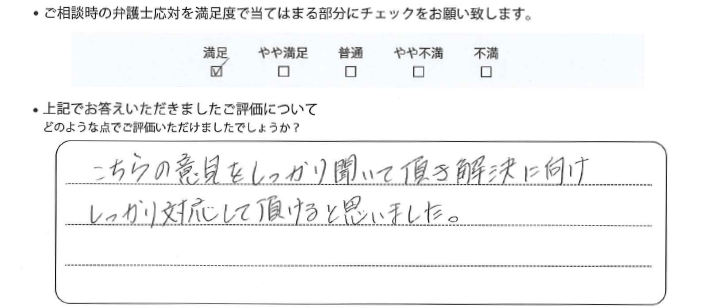 • ご相談時の弁護士応対を満足度で当てはまる部分にチェックをお願い致します。
満足 やや満足 普通 やや不満 不満
☑ ☐ ☐ ☐ ☐
• 上記でお答えいただきましたご評価について
どのような点でご評価いただけましたでしょうか？
こちらの意見をしっかり聞いて頂き解決に向け
しっかり対応して頂けると思いました。